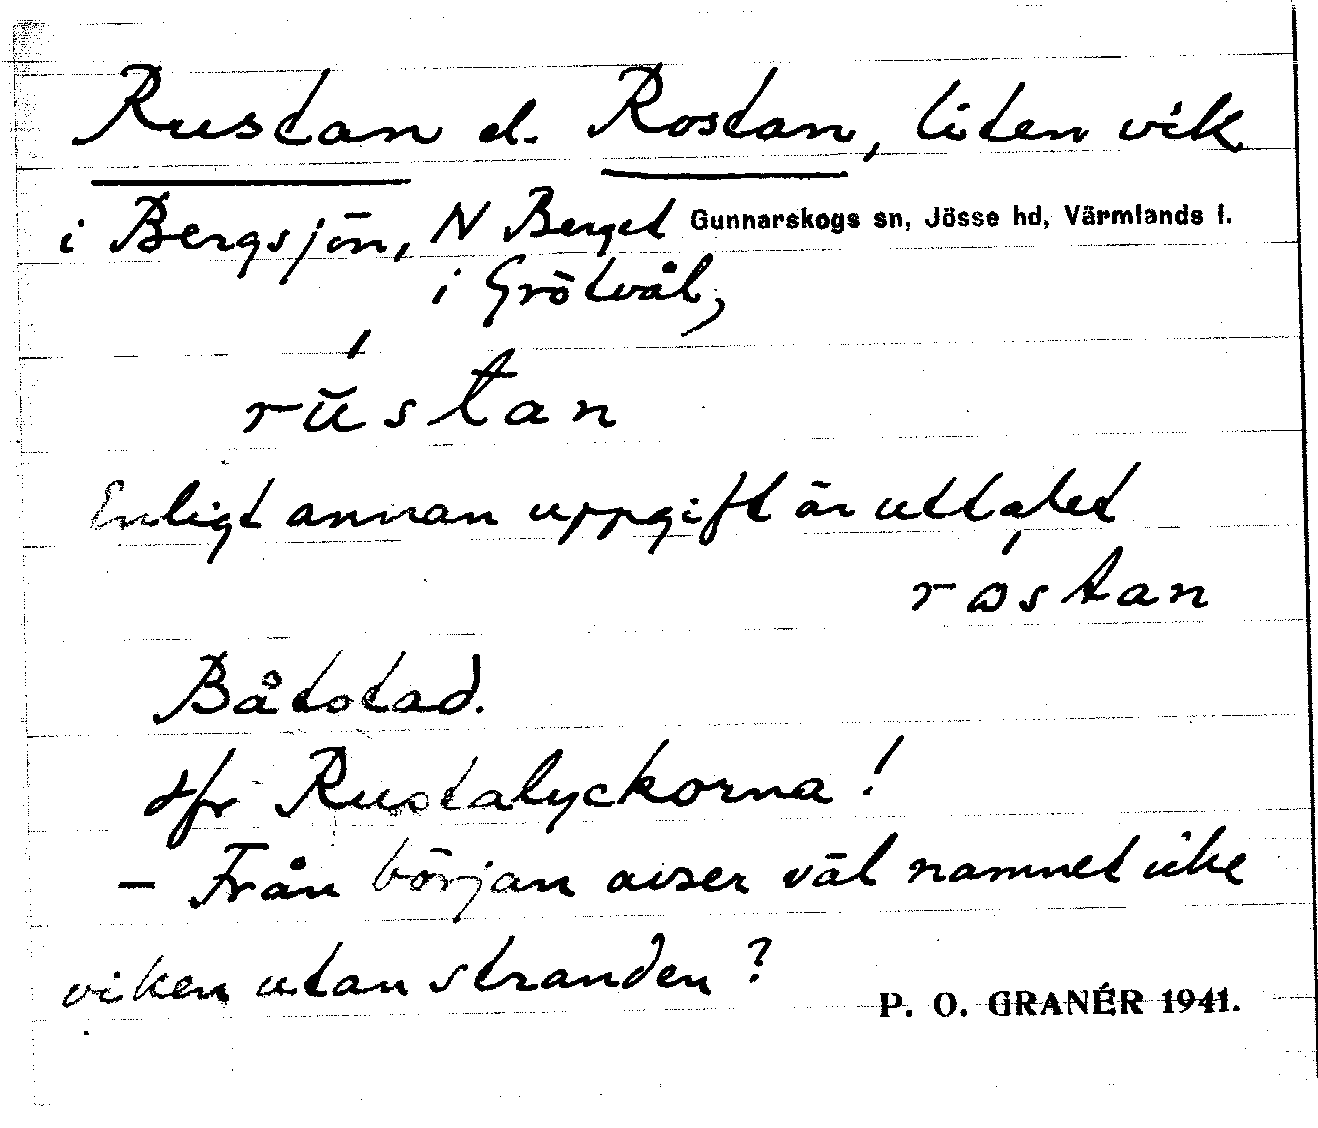 Rustan el. Rostan, liten vik
i Bergsjön, N Berget Gunnarskogs sn, Jösse hd, Värmlands l.
i Grötvål,
rŭ́stan
Enligt annan uppgift är uttalet
rɷ́stan
Båtstad.
Jfr Rustalyckorna!
– Från början avser väl namnet icke
viken utan stranden?
P. O. GRANÉR 1941.